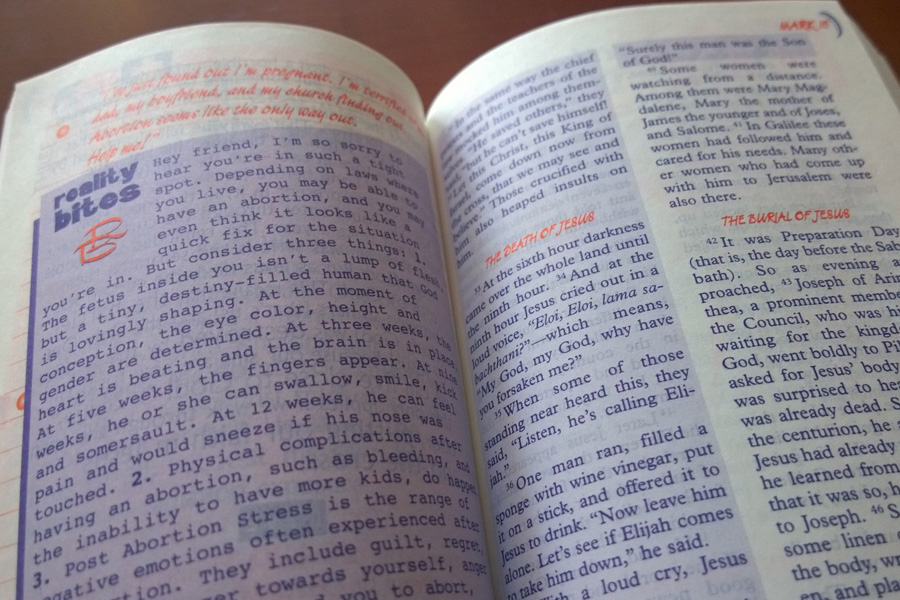 I'm just found out I'm pregnant. I'm terrified
dad, my boyfriend, and my church finding out.
Abortion seems like the only way out.
Help me!"
reality
bites
B
Hey friend, I'm so sorry to
hear you're in such a tight
spot. Depending on laws where
you live, you may be able to
have an abortion, and you may
even think it looks like a
quick fix for the situation
you're in. But consider three things: 1.
The fetus inside you isn't a lump of flesh,
but a tiny, destiny-filled human that God
is lovingly shaping. At the moment of
conception, the eye color, height and
gender are determined. At three weeks, the
heart is beating and the brain is in place.
At five weeks, the fingers appear. At nine
weeks, he or she can swallow, smile, kick
and somersault. At 12 weeks, he can feel
pain and would sneeze if his nose was
touched. 2. Physical complications after
having an abortion, such as bleeding, and
the inability to have more kids, do happen.
3. Post Abortion Stress is the range of
negative emotions often experienced after
They include guilt, regret,
towards yourself, anger
you to abort,
MARK 15
in the same way the chief
and the teachers of the
mocked him among them-
"He saved others," they
but he can't save himself!
"Let this Christ, this King of
come down now from
cross, that we may see and
believe." Those crucified with
him also heaped insults on
him.
THE DEATH OF JESUS
33 At the sixth hour darkness
came over the whole land until
the ninth hour. 34 And at the
ninth hour Jesus cried out in a
loud voice, "Eloi, Eloi, lama sa-
bachthani?"—which means,
"My God, my God, why have
you forsaken me?"
35 When some of those
standing near heard this, they
said, "Listen, he's calling Eli-
jah."
36 One man ran, filled a
sponge with wine vinegar, put
it on a stick, and offered it to
Jesus to drink. "Now leave him
alone. Let's see if Elijah comes
to take him down," he said.
a loud cry, Jesus
"Surely this man was the Son
of God!"
40 Some women were
watching from a distance.
Among them were Mary Mag-
dalene, Mary the mother of
James the younger and of Joses,
and Salome. 41 In Galilee these
women had followed him and
cared for his needs. Many oth-
er women who had come up
with him to Jerusalem were
also there.
THE BURIAL OF JESUS
42 It was Preparation Day
(that is, the day before the Sab-
bath). So as evening
proached, 43 Joseph of Arim
thea, a prominent membe
the Council, who was hi
waiting for the kingd
God, went boldly to Pil
asked for Jesus' body
was surprised to hea
was already dead. S
the centurion, he a
Jesus had already
he learned from
that it was so, h
to Joseph. 46 S
some linen
the body, wr
en, and pla